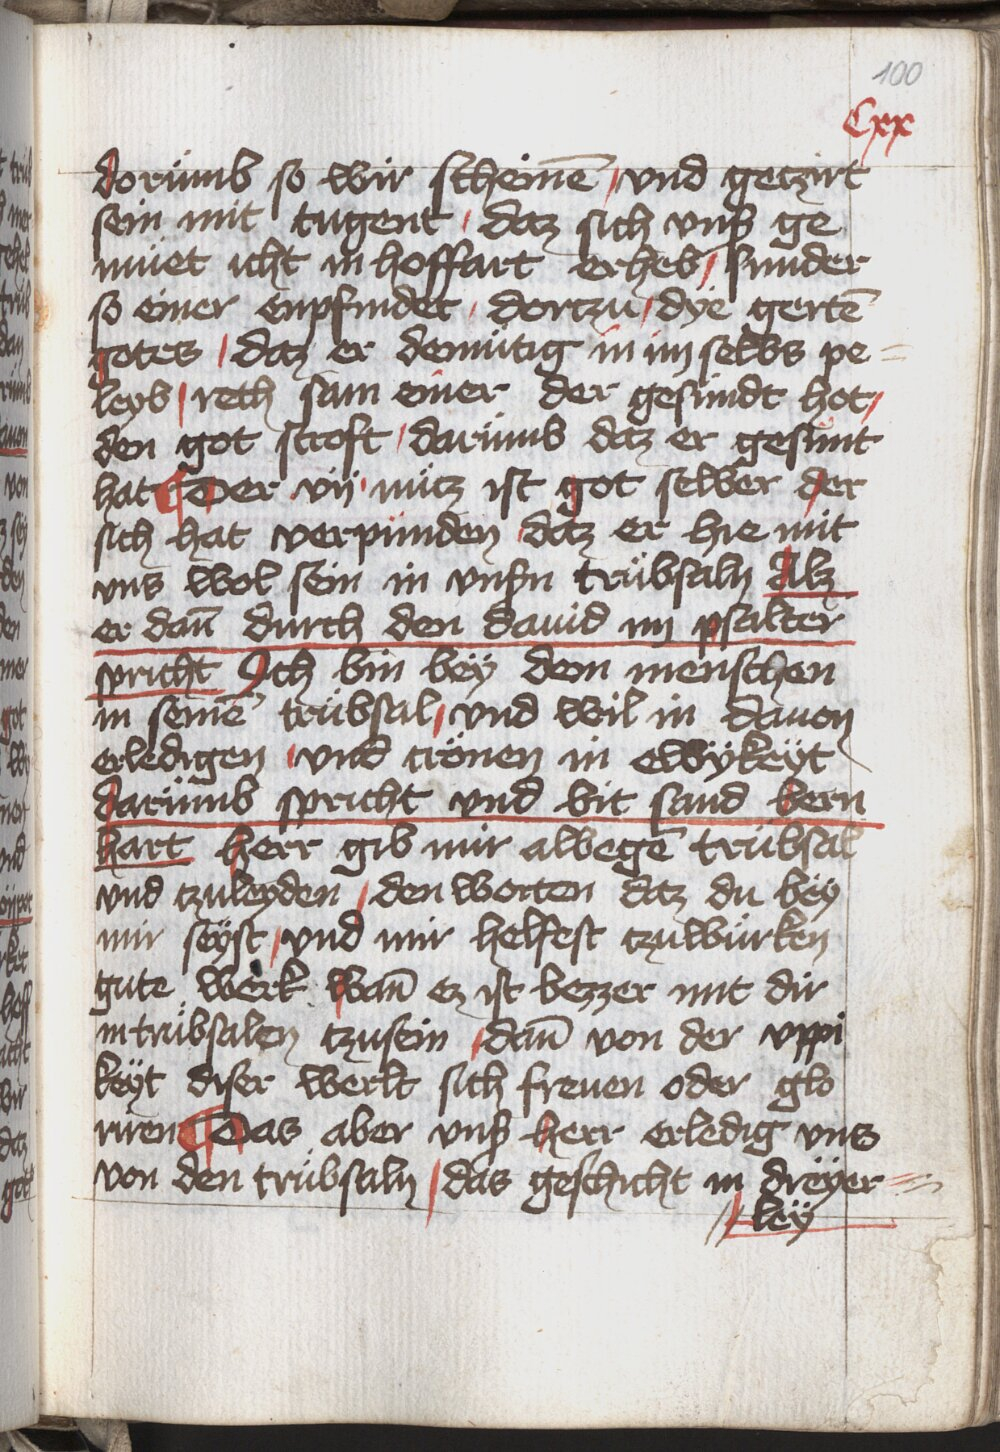 100
Cxx
dorümb so wir scheinē / vnd getzirt
sein mit tugent / datz sich vnß ge
müet icht in hoffart erheb / sunder
so einer enpfindet / dortzu / dye gertē
gotes / datz er demütig in im selbs pe=
leyb / reth sam einer der gesundt hot /
den got stroft / darümb datz er gesünt
hat ¶ Der vij nütz ist got selber der
sich hat verpunden datz er hie mit
vns wol sein in vnßn trübsaln Alz
er dan̄ durch den dauid im psalter
spricht Ich bin bëy dem menschen
in seinē trübsal / vnd wil in dauon
erledigen / vnd crönen in ewykëyt
darümb spricht vnd bit sand bern
hart herr gib mir albegē trübsal
vnd tzuleyden / den worten datz du bëy
mir sëyst / vnd mir helfest tzuwürken
gute werk wan̄ ez ist bezzer mit dir
in trübsalen tzusein / dan̄ von der vppi
këyt diser werlt sich freuen oder glo
riren ¶ Das aber vnß herr erledig vns
von den trübsaln / das geschicht in drëyer=
lëÿ